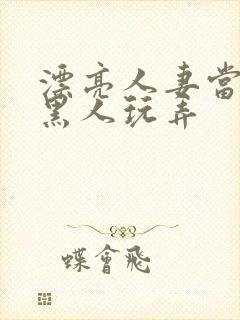 漂亮人妻當
黑人玩弄
蝶會飛